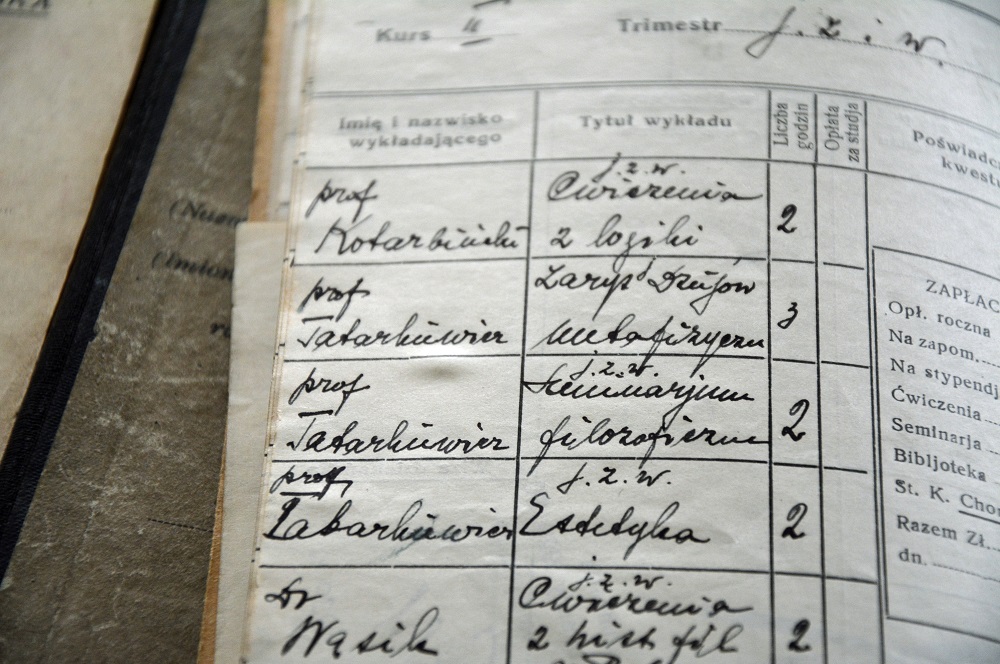 Kurs II Trimestr j. z i w.
Imię i nazwisko wykładającego
Tytuł wykładu
Liczba godzin
Opłata za studja
Poświadcz
kwestu
prof j. z. w.
Kotarbiński Ćwiczenia z logiki 2
prof Tatarkiewicz Zarys Dziejów metafizyczn 3
prof j. z. w.
Tatarkiewicz Seminarjum filozoficzne 2
prof j. z. w.
Tatarkiewicz Estetyka 2
Dr j. z. w.
Wąsik Ćwiczenia z hist fil 2
ZAPŁAC
Opł. roczna
Na zapom.
Na stypendj
Ćwiczenia
Seminarja
Bibljoteka
St. K. Chor
Razem Zł.
dn.